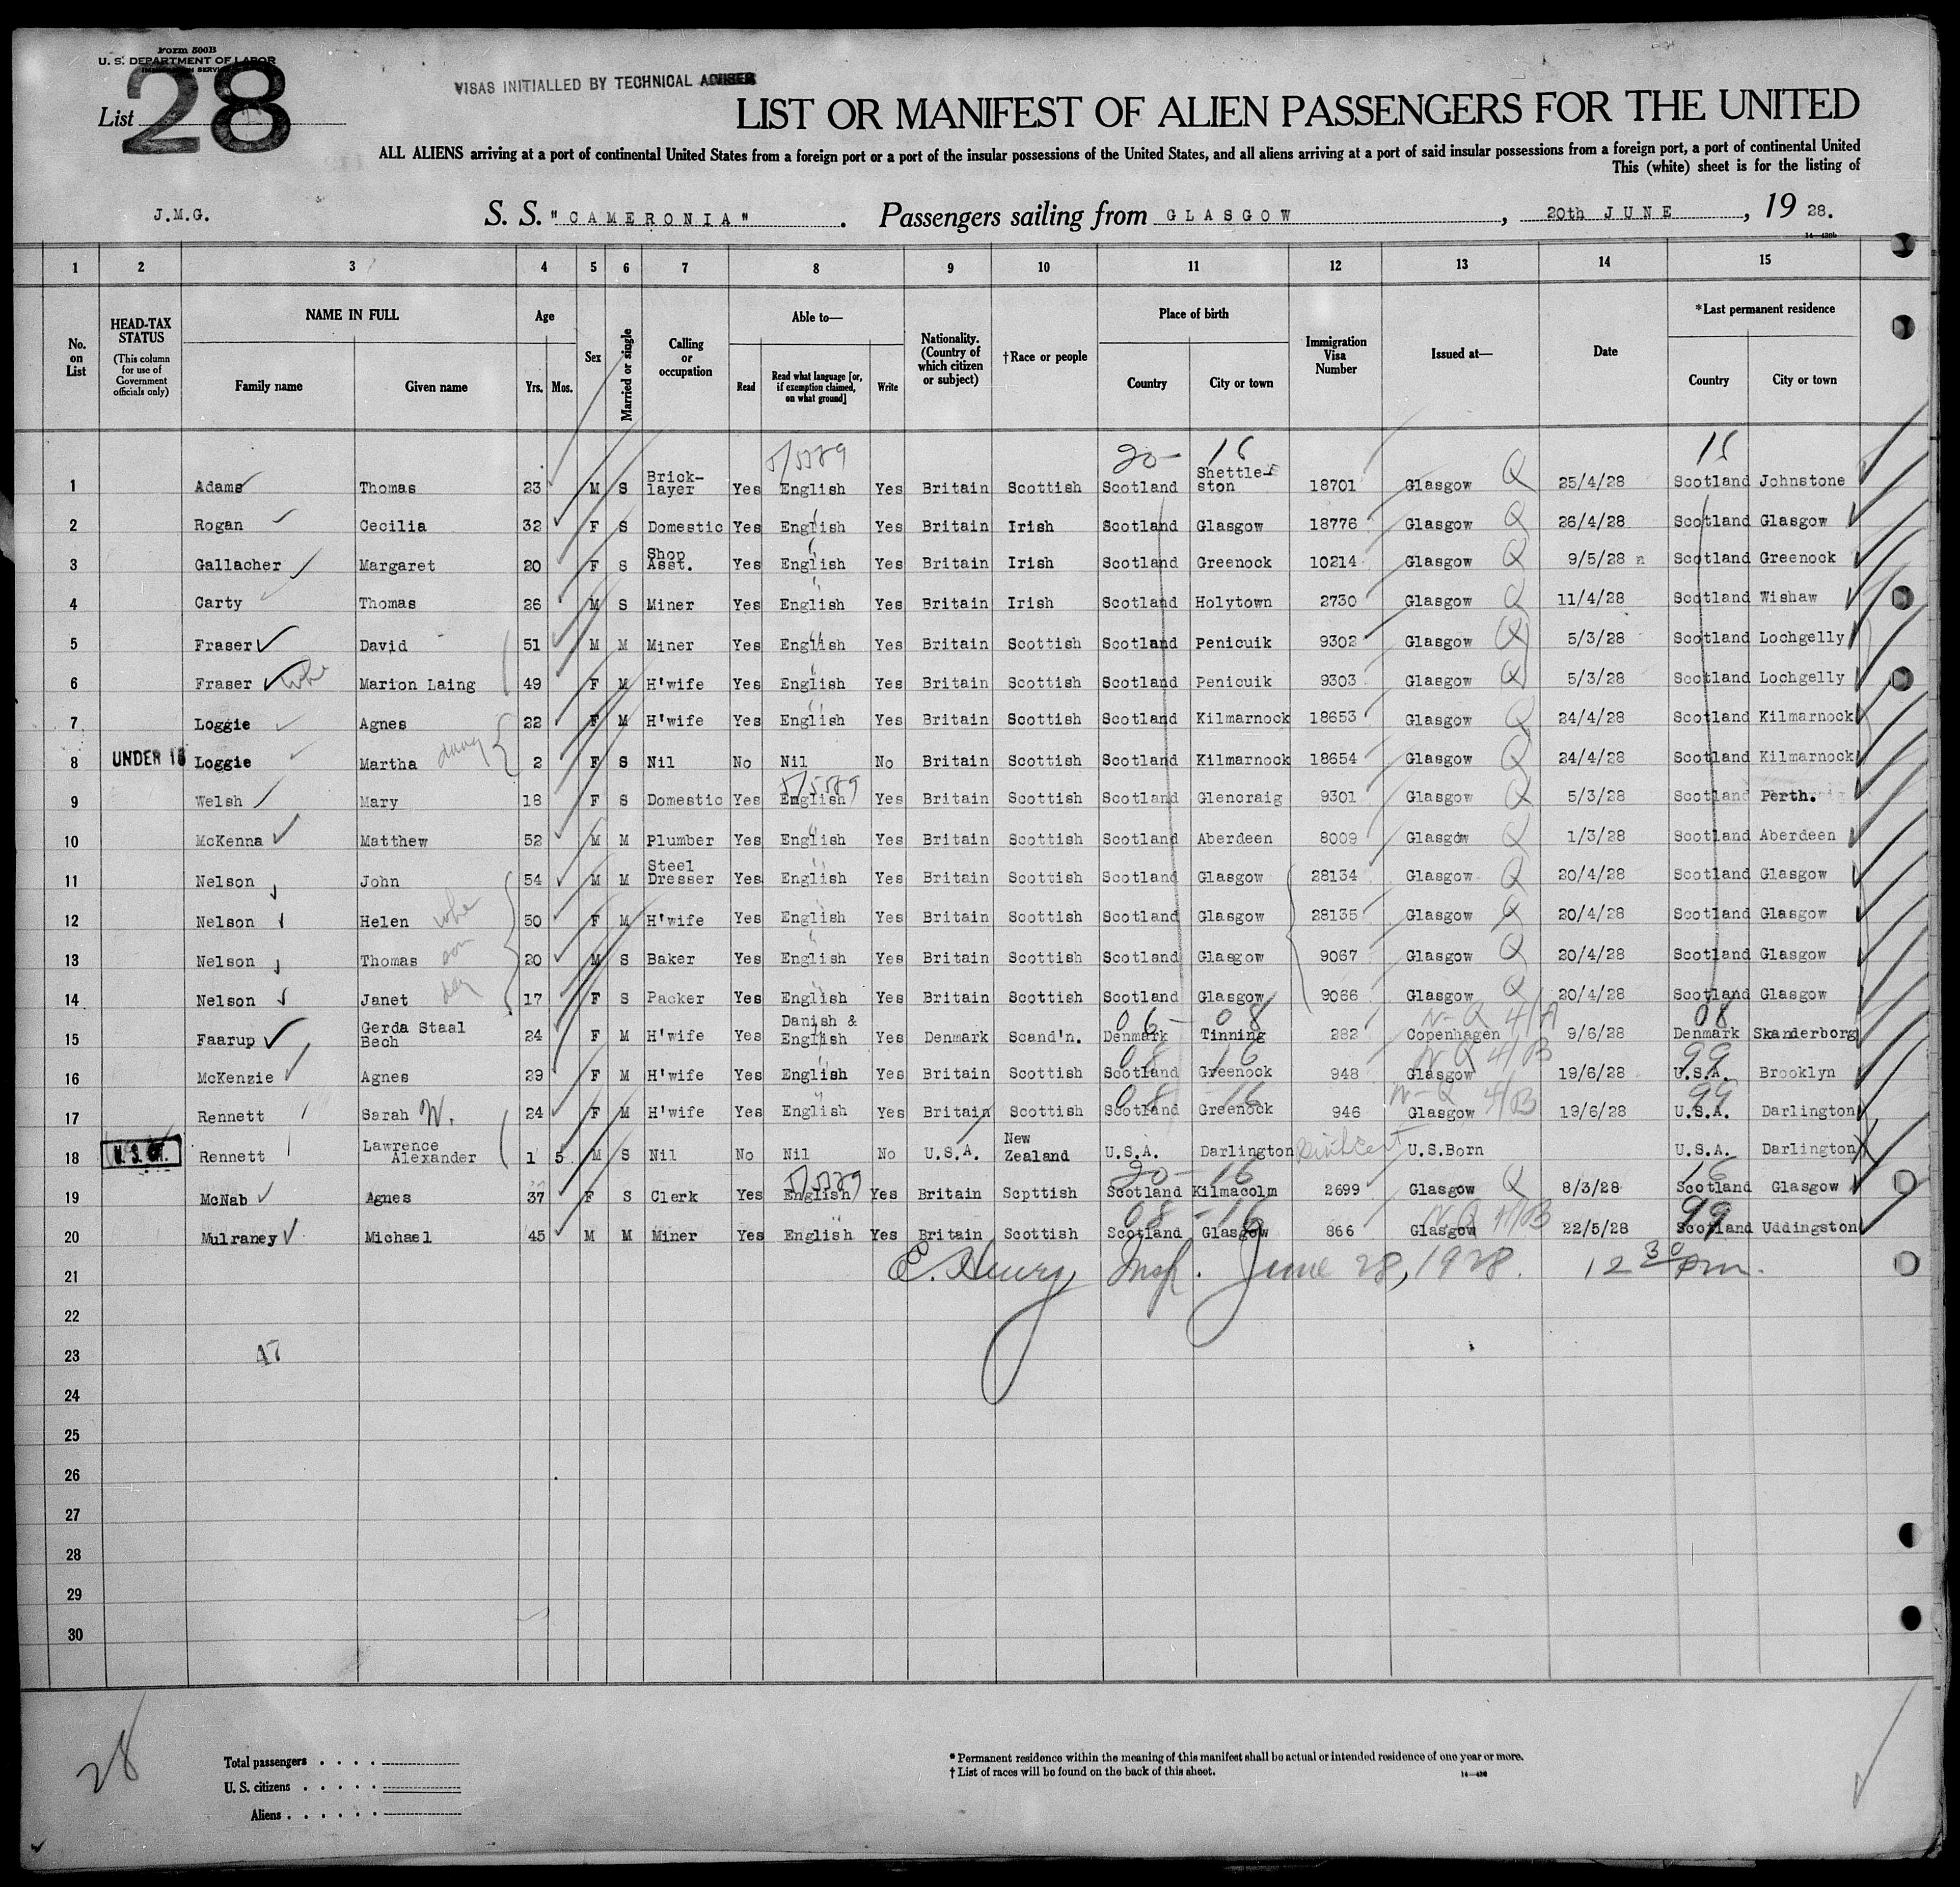 Form 500B
U. S. DEPARTMENT OF LABOR
List 28
VISAS INITIALLED BY TECHNICAL ADVISER
LIST OR MANIFEST OF ALIEN PASSENGERS FOR THE UNITED
ALL ALIENS arriving at a port of continental United States from a foreign port or a port of the insular possessions of the United States, and all aliens arriving at a port of said insular possessions from a foreign port, a port of continental United
This (white) sheet is for the listing of
J.M.G. S. S. "CAMERONIA". Passengers sailing from GLASGOW, 20th JUNE, 1928.
1 2 3 4 5 6 7 8 9 10 11 12 13 14 15
No. on List HEAD-TAX STATUS (This column for use of Government officials only) NAME IN FULL Family name Given name Age Yrs. Mos. Sex Married or single Calling or occupation Able to— Read Read what language [or, if exemption claimed, on what ground] Write Nationality. (Country of which citizen or subject) †Race or people Place of birth Country City or town Immigration Visa Number Issued at— Date *Last permanent residence Country City or town
20 - 16 16
1 Adams Thomas 23 M S Brick-layer Yes English Yes Britain Scottish Scotland Shettle-ston 18701 Glasgow Q 25/4/28 Scotland Johnstone
2 Rogan Cecilia 32 F S Domestic Yes English Yes Britain Irish Scotland Glasgow 18776 Glasgow Q 26/4/28 Scotland Glasgow
3 Gallacher Margaret 20 F S Shop Asst. Yes English Yes Britain Irish Scotland Greenock 10214 Glasgow Q 9/5/28 Scotland Greenock
4 Carty Thomas 26 M S Miner Yes English Yes Britain Irish Scotland Holytown 2730 Glasgow Q 11/4/28 Scotland Wishaw
5 Fraser David 51 M M Miner Yes English Yes Britain Scottish Scotland Penicuik 9302 Glasgow Q 5/3/28 Scotland Lochgelly
6 Fraser Marion Laing 49 F M H'wife Yes English Yes Britain Scottish Scotland Penicuik 9303 Glasgow Q 5/3/28 Scotland Lochgelly
7 Loggie Agnes 22 F M H'wife Yes English Yes Britain Scottish Scotland Kilmarnock 18653 Glasgow Q 24/4/28 Scotland Kilmarnock
8 UNDER 16 Loggie Martha daug 2 F S Nil No Nil No Britain Scottish Scotland Kilmarnock 18654 Glasgow Q 24/4/28 Scotland Kilmarnock
9 Welsh Mary 18 F S Domestic Yes English Yes Britain Scottish Scotland Glencraig 9301 Glasgow Q 5/3/28 Scotland Perth.
10 McKenna Matthew 52 M M Plumber Yes English Yes Britain Scottish Scotland Aberdeen 8009 Glasgow Q 1/3/28 Scotland Aberdeen
11 Nelson John 54 M M Steel Dresser Yes English Yes Britain Scottish Scotland Glasgow 28134 Glasgow Q 20/4/28 Scotland Glasgow
12 Nelson Helen 50 F M H'wife Yes English Yes Britain Scottish Scotland Glasgow 28135 Glasgow Q 20/4/28 Scotland Glasgow
13 Nelson Thomas son 20 M S Baker Yes English Yes Britain Scottish Scotland Glasgow 9067 Glasgow Q 20/4/28 Scotland Glasgow
14 Nelson Janet 17 F S Packer Yes English Yes Britain Scottish Scotland Glasgow 9066 Glasgow Q 20/4/28 Scotland Glasgow
06 - 08 N-Q 4/A 08
15 Faarup Gerda Staal Bech 24 F M H'wife Yes Danish & English Yes Denmark Scand'n. Denmark Tinning 282 Copenhagen 9/6/28 Denmark Skanderborg
08 16 N Q 4/B 99
16 McKenzie Agnes 29 F M H'wife Yes English Yes Britain Scottish Scotland Greenock 948 Glasgow 19/6/28 U.S.A. Brooklyn
08 - 16 N-Q 4/B 99
17 Rennett Sarah W. 24 F M H'wife Yes English Yes Britain Scottish Scotland Greenock 946 Glasgow 19/6/28 U.S.A. Darlington
18 U.S. CIT. Rennett Lawrence Alexander 1 5 M S Nil No Nil No U.S.A. New Zealand U.S.A. Darlington Birth Cert U.S.Born U.S.A. Darlington
20 - 16 16
19 McNab Agnes 37 F S Clerk Yes English Yes Britain Scpttish Scotland Kilmacolm 2699 Glasgow Q 8/3/28 Scotland Glasgow
08 - 16 N Q 4/B 99
20 Mulraney Michael 45 M M Miner Yes English Yes Britain Scottish Scotland Glasgow 866 Glasgow 22/5/28 Scotland Uddingston
21 E. Henry Insp. June 28, 1928. 12 30 pm.
22
23 47
24
25
26
27
28
29
30
28
Total passengers
U. S. citizens
Aliens
* Permanent residence within the meaning of this manifest shall be actual or intended residence of one year or more.
† List of races will be found on the back of this sheet.